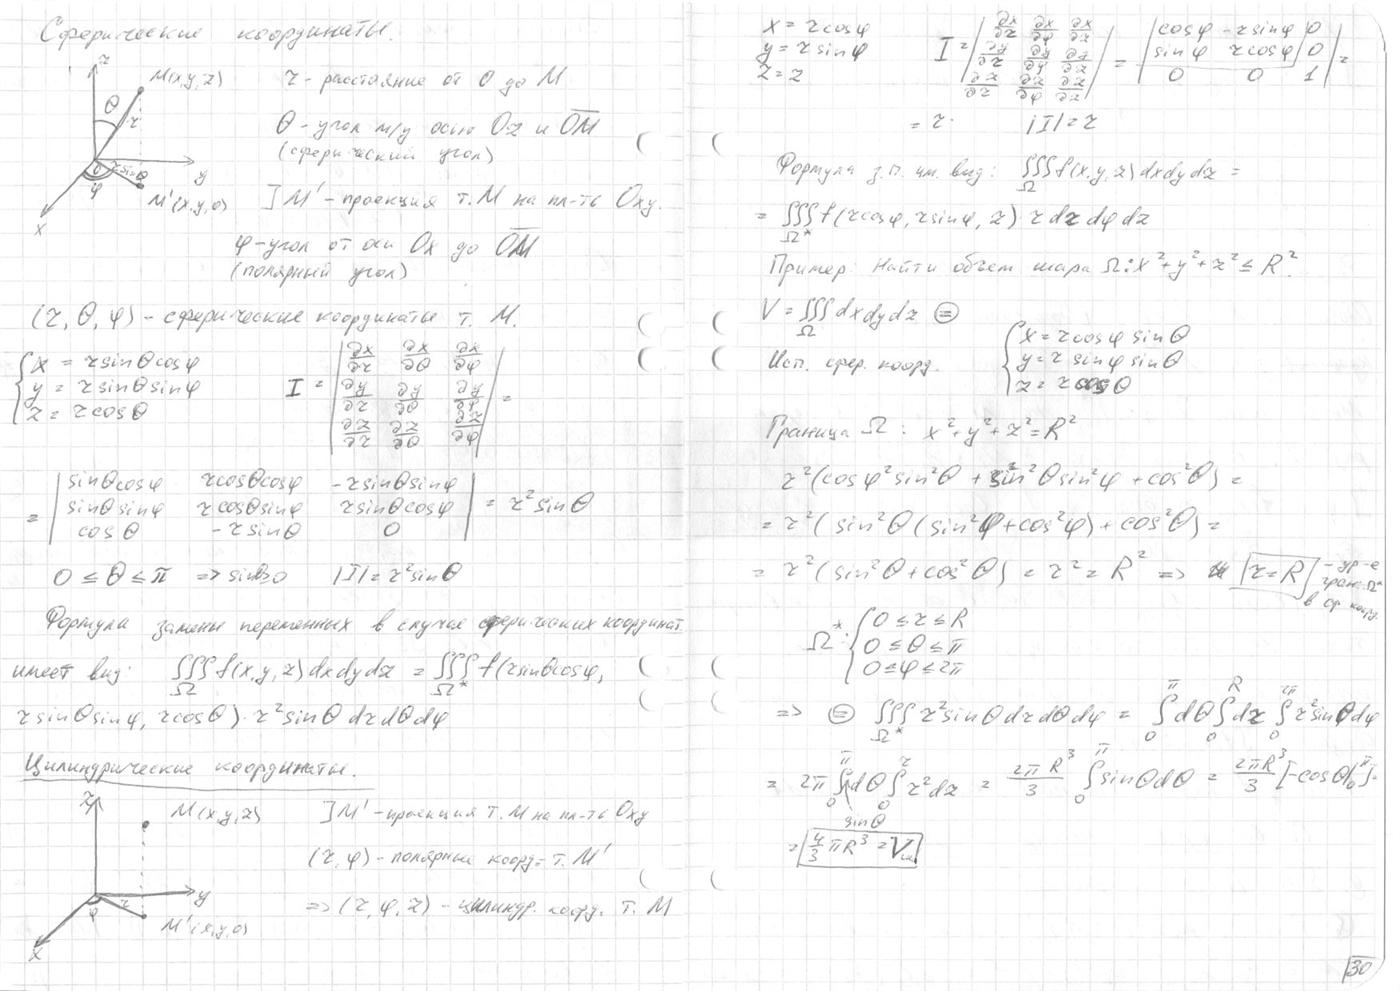 Сферические координаты.
z
M(x,y,z)
θ
r
r sinθ
φ
y
M'(x,y,0)
x
r - расстояние от O до M
θ - угол м/у осью Oz и OM
(сферический угол)
] M' - проекция т. M на пл-ть Oxy.
φ - угол от оси Ox до OM
(полярный угол)
(r, θ, φ) - сферические координаты т. M.
x = r sinθ cosφ
y = r sinθ sinφ
z = r cosθ
I = | ∂x/∂r ∂x/∂θ ∂x/∂φ |
| ∂y/∂r ∂y/∂θ ∂y/∂φ | =
| ∂z/∂r ∂z/∂θ ∂z/∂φ |
| sinθcosφ rcosθcosφ -rsinθsinφ |
= | sinθsinφ rcosθsinφ rsinθcosφ | = r² sinθ
| cosθ -rsinθ 0 |
0 ≤ θ ≤ π => sinθ>0 |I| = r² sinθ
Формула замены переменных в случае сферических координат
имеет вид: ∭Ω f(x,y,z)dxdydz = ∭Ω* f(rsinθcosφ,
rsinθsinφ, rcosθ)·r²sinθ drdθdφ
Цилиндрические координаты.
z
M(x,y,z)
y
φ
r
M'(x,y,0)
x
] M' - проекция т. M на пл-ть Oxy
(r, φ) - полярные коорд-ты т. M'
=> (r, φ, z) - цилиндр. коорд. т. M
x = r cosφ
y = r sinφ
z = z
I = | ∂x/∂r ∂x/∂φ ∂x/∂z |
| ∂y/∂r ∂y/∂φ ∂y/∂z | =
| ∂z/∂r ∂z/∂φ ∂z/∂z |
| cosφ -rsinφ 0 |
| sinφ rcosφ 0 | =
| 0 0 1 |
= r. |I| = r
Формула з.п. им. вид: ∭Ω f(x,y,z)dxdydz =
= ∭Ω* f(rcosφ, rsinφ, z)·r dr dφ dz
Пример: Найти объем шара Ω: x²+y²+z² ≤ R².
V = ∭Ω dxdydz ⊜
Исп. сфер. коорд.
x = r cosφ sinθ
y = r sinφ sinθ
z = r cosθ
Граница Ω: x²+y²+z² = R²
r²(cosφ² sin²θ + sin²θ sin²φ + cos²θ) =
= r²(sin²θ(sin²φ+cos²φ) + cos²θ) =
= r²(sin²θ + cos²θ) = r² = R² => r = R - ур-е
гран. Ω*
в сф. коорд.
Ω*:
0 ≤ r ≤ R
0 ≤ θ ≤ π
0 ≤ φ ≤ 2π
=> ⊜ ∭Ω* r² sinθ drdθdφ = ∫₀^π dθ ∫₀^R dr ∫₀^2π r² sinθ dφ
= 2π ∫₀^π dθ ∫₀^r r² dr = 2πR³/3 ∫₀^π sinθ dθ = 2πR³/3 [-cosθ|₀^π] =
sinθ
= 4/3 πR³ = Vш
30